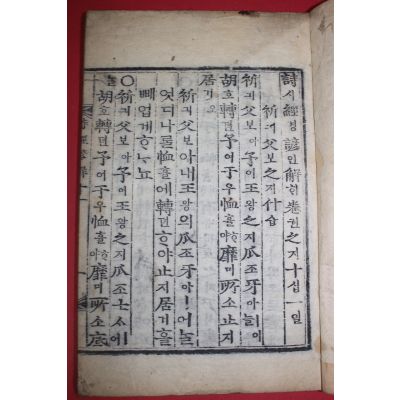 詩시經경諺언解ᄒᆡ卷권之지十십一일
祈긔父보之지什십
祈긔父보아予여王왕之지爪조牙아ㅣ어
胡호轉뎐予여于우恤휼ᄒᆞ야靡미所소止지
居거오
祈긔父보아내王왕의爪조牙아ㅣ어ᄂᆞᆯ
엇디나ᄅᆞᆯ恤휼에轉뎐ᄒᆞ야止지居거ᄒᆞᆯ
빼업게ᄒᆞᄂᆞ뇨
○祈긔父보아予여王왕之지爪조士ᄉᆞ
胡호轉뎐予여于우恤휼ᄒᆞ야靡미所소底